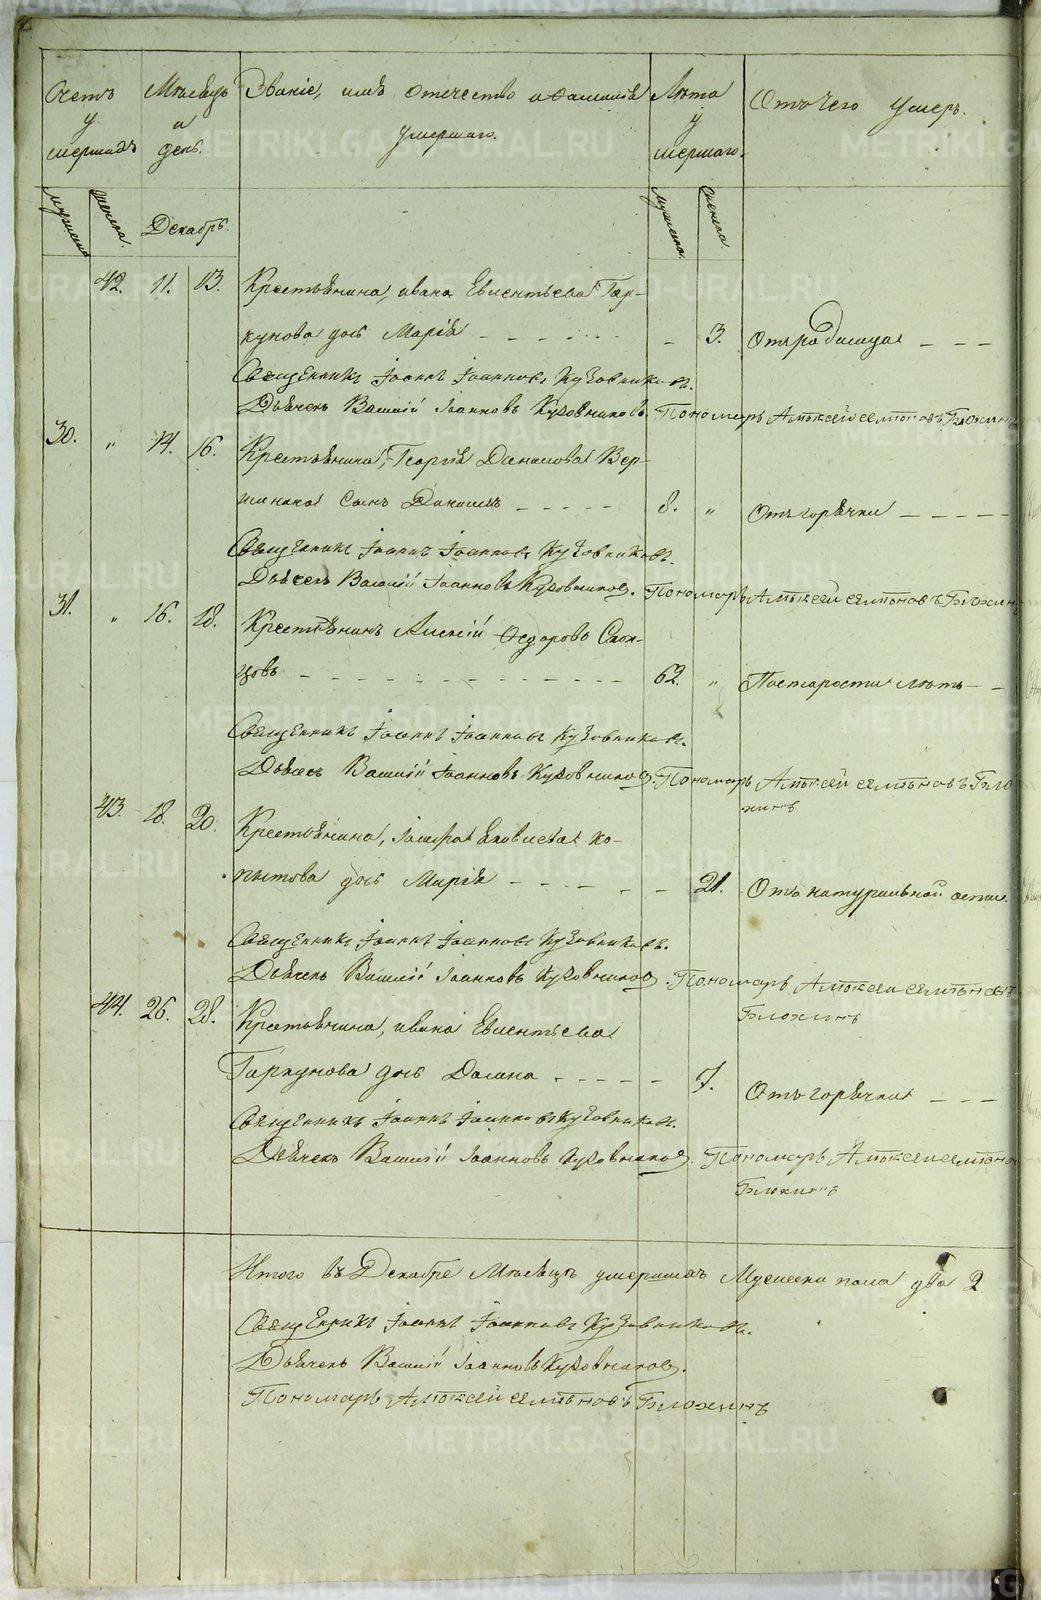 Счетъ умершихъ
Мѣсяцъ и день.
Званіе, имя отечество и фамилія умершаго.
Лѣта умершаго.
Отъ чего умеръ.
мужеска
женска.
Декабрь.
мужеска
женска.
42. 11. 13. Крестьянина, ивана Евлентьева Тар-
кунова дочь Марія 3. Отъ родимца
Священникъ Іоаннъ Іоанновъ Кузовниковъ.
Дьячекъ Василій Іоанновъ Кузовниковъ. Пономарь Алѣксей семѣновъ Блохинъ
30. " 14. 16. Крестьянина, Георгія Данилова Вер-
шинина сынъ Даніилъ 8. " Отъ горячки
Священникъ Іоаннъ Іоанновъ Кузовниковъ.
Дьячекъ Василій Іоанновъ Кузовниковъ. Пономарь Алѣксей семѣновъ Блохинъ
31. " 16. 18. Крестьянинъ Алексій Федоровъ
цовъ 62. " По старости лѣтъ
Священникъ Іоаннъ Іоанновъ Кузовниковъ.
Дьячекъ Василій Іоанновъ Кузовниковъ. Пономарь Алѣксей семѣновъ Бло
хинъ
43. 18. 20. Крестьянина, Яковлева Ко-
пытова дочь Марія 21. Отъ натуральной оспы.
Священникъ Іоаннъ Іоанновъ Кузовниковъ.
Дьячекъ Василій Іоанновъ Кузовниковъ. Пономарь Алѣксей семѣновъ
Блохинъ
44. 26. 28. Крестьянина, ивана Евлентьева
Таркунова дочь 7. Отъ горячки
Священникъ Іоаннъ Іоанновъ Кузовниковъ.
Дьячекъ Василій Іоанновъ Кузовниковъ. Пономарь Алѣксей семѣновъ
Блохинъ
Итого въ Декабрѣ Мѣсяцѣ умершихъ Мужеска пола два 2
Священникъ Іоаннъ Іоанновъ Кузовниковъ.
Дьячекъ Василій Іоанновъ Кузовниковъ.
Пономарь Алѣксей семѣновъ Блохинъ
METRIKI.GASO-URAL.RU